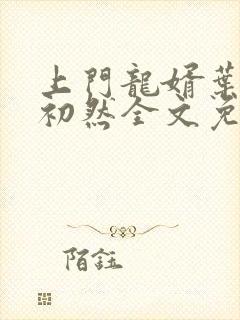 上門龍婿葉
初然全文免
陌鈺